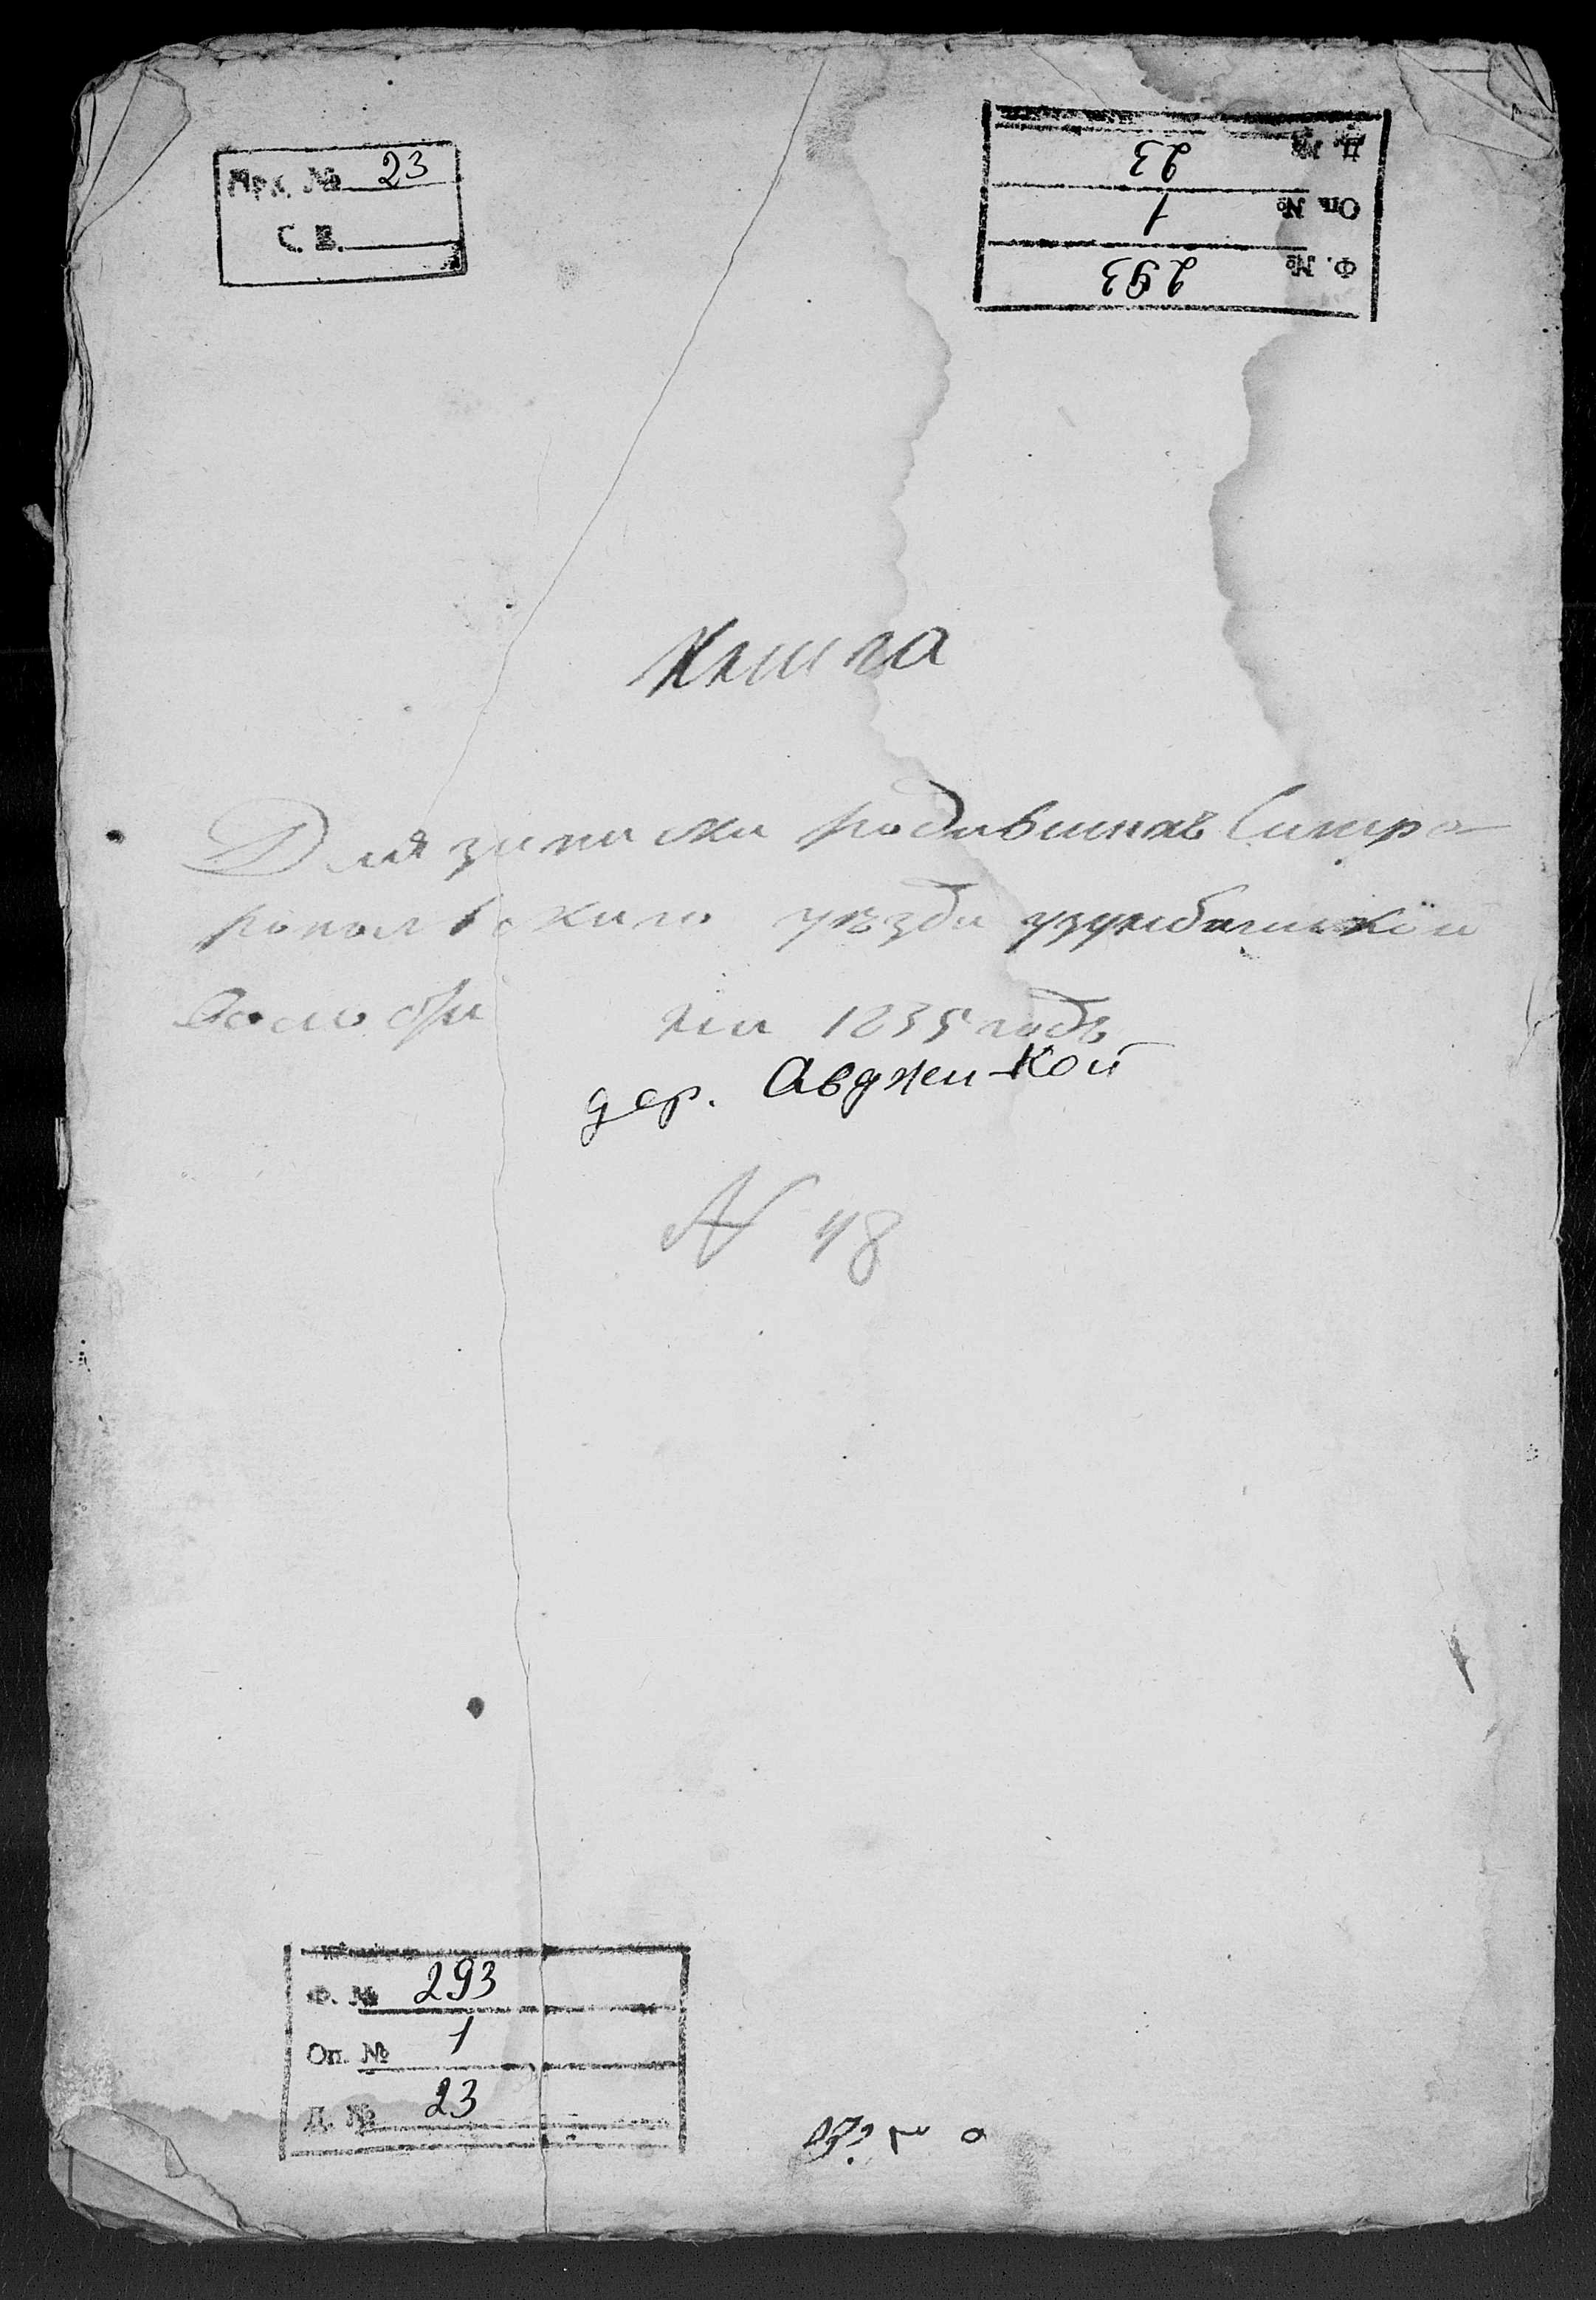 Арх. № 23
С. В.
Д. № 23
Оп. № 1
Ф. № 293
Книга
Для записки родившихъ Симфе-
ропольскаго уезда узунбашской
волости на 1835 годъ
дер. Авджи-Кой
N 48
Ф. № 293
Оп. № 1
Д. № 23